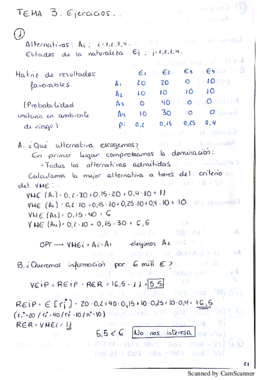 TEMA 3. Ejercicios...
①
Alternativas: Ai; i=1,2,3,4.
Estados de la naturaleza Ej; j=1,2,3,4.
Matriz de resultados E1 E2 E3 E4
favorables. A1 20 20 0 10
A2 10 10 10 10
(Probabilidad A3 0 40 0 0
unitaria en ambiente A4 10 30 0 0
de riesgo) P: 0,2 0,15 0,25 0,4
A. ¿Qué alternativa escogemos?
En primer lugar comprobamos la dominación:
• Todas las alternativas admitidas
Calculamos la mejor alternativa a través del criterio
del VME:
VME (A1) = 0,2·20+0,15·20+0,4·10 = 11
VME (A2) = 0,2·10+0,15·10+0,25·10+0,4·10 = 10
VME (A3) = 0,15·40 = 6
VME (A4) = 0,2·10+0,15·30 = 6,5
OPT → VMEi = Ai: A1 elegimos
B. ¿Queremos información por 6 mill €?
VEIP = REIP - RER = 16,5 - 11 = 5,5
REIP = E[ri*] = 20·0,2+40·0,15+10·0,25+10·0,4 = 16,5
RER = VMEi = 11
5,5 < 6 No nos interesa
21
Scanned by CamScanner